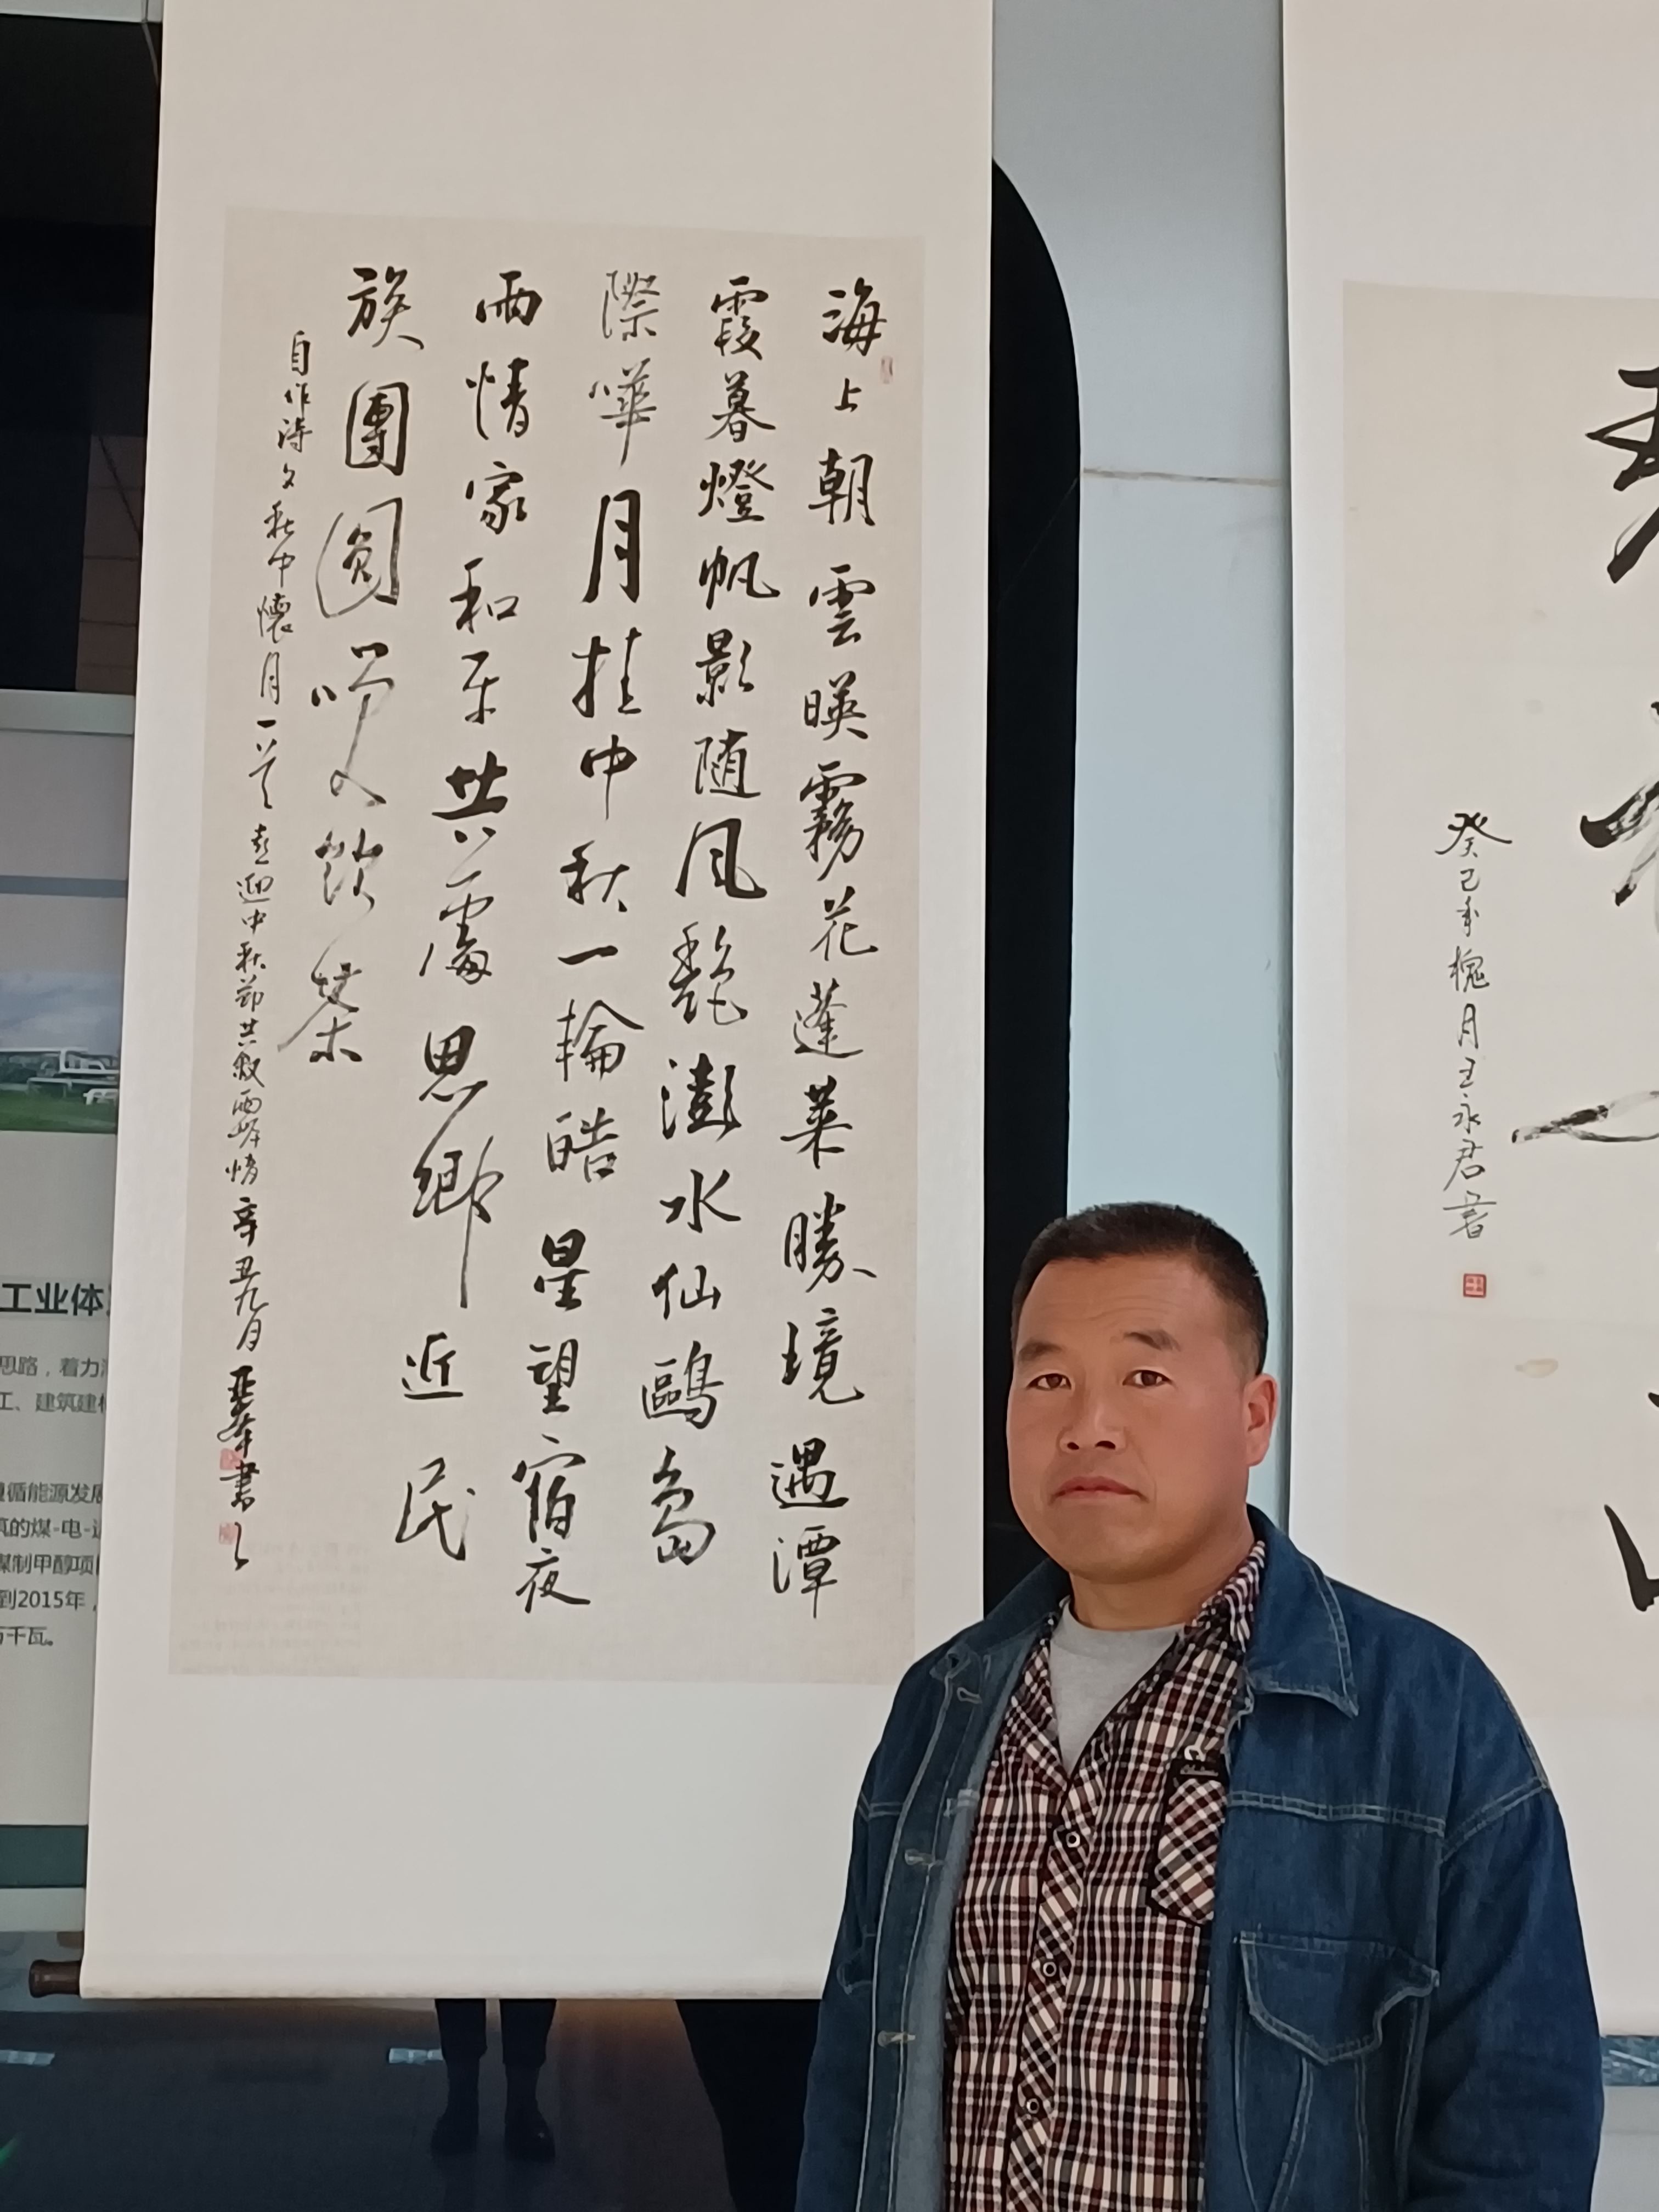 海上朝雲暎霧花蓬萊勝境遇潭
霞暮燈帆影随风艷澎水仙鷗島
際嘩月挂中秋一輪皓星望宿夜
两情家和平共處思鄉近民
族團圓飲茶
自作詩文秋中懷月一首喜迎中秋節共敘两岸情辛丑九月
書
癸巳年槐月王永君書
工业体
思路，着力
工、建筑建
循能源发展
的煤-电-
煤制甲醇项
到2015年，
千瓦。